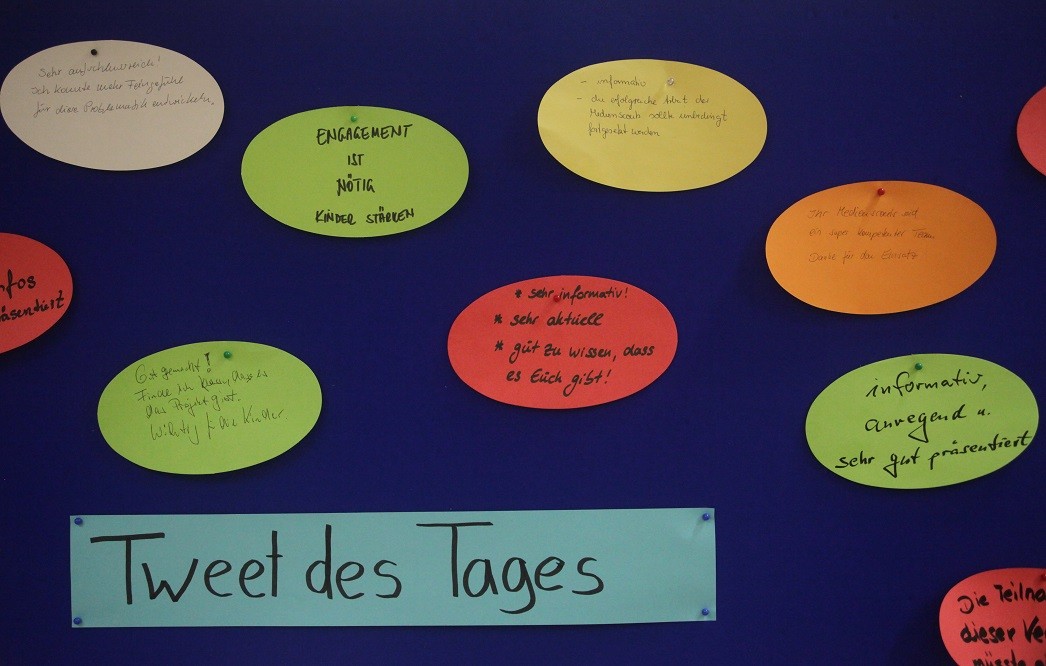 Sehr aufschlussreich!
Ich konnte mehr Feingefühl
für diese Problematik entwickeln
ENGAGEMENT
IST
NÖTIG
KINDER STÄRKEN
- informativ
- die erfolgreiche Arbeit der
Medienscouts sollte unbedingt
fortgesetzt werden
Ihr Medienscouts seid
ein super kompetenter Team
Danke für den Einsatz
nfos
äsentiert
* sehr informativ!
* sehr aktuell
* gut zu wissen, dass
es Euch gibt!
Gut gemacht!
Finde ich klasse, dass es
das Projekt gibt.
Wichtig für die Kinder
informativ,
anregend u.
sehr gut präsentiert
Tweet des Tages
Die Teilna
dieser Ve
müsste